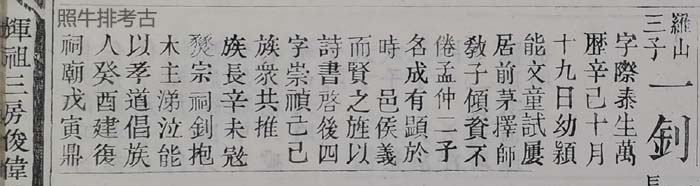 照牛排考古
羅山
三子
一釗
字際泰生萬
歷辛巳十月
十九日幼穎
能文童試屢
居前茅擇師
敎子傾貲不
倦孟仲二子
名成有顯於
時 邑侯義
而賢之旌以
詩書啓後四
字崇禎己巳
族衆共推
族長辛未冦
燹宗祠釗抱
木主涕泣能
以孝道倡族
人癸酉建復
祠廟戊寅鼎
輝祖三房俊偉